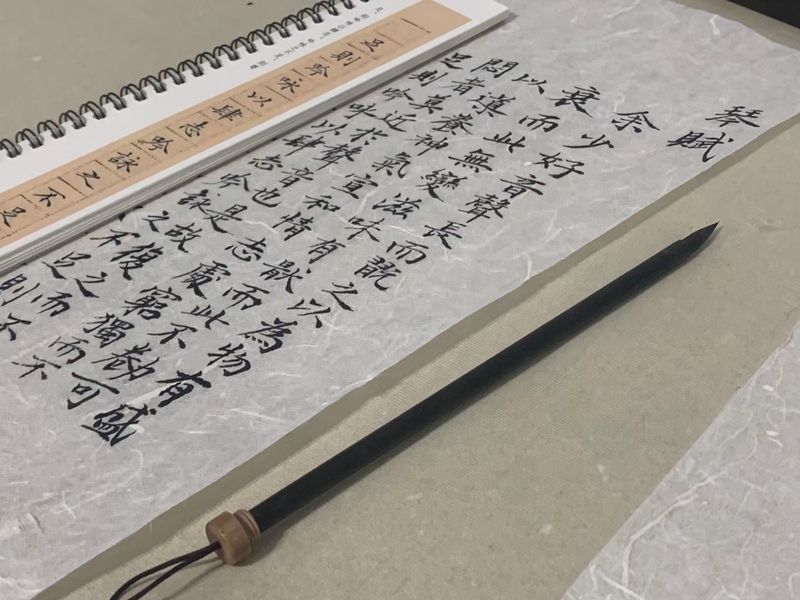 琴賦
余少好音聲長而翫之以為物有盛
衰而此無變滋味有猒而此不勌可
以導養神氣宣和情志處窮獨而不
悶者莫近於音聲也是故復之而不
足則吟咏以肆志吟詠之不足則
足則吟咏以肆志吟詠之不足